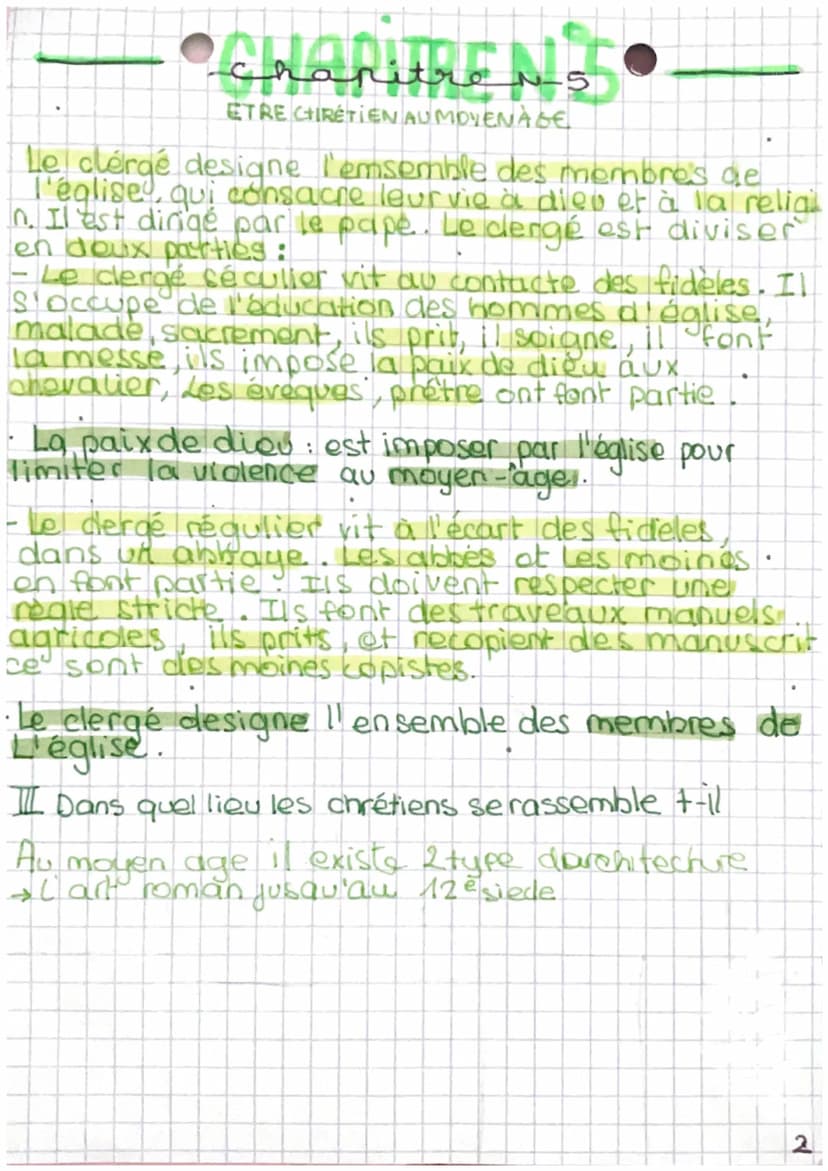 CHAPITRE N°5
Chapitre N 5
ETRE CHRÉTIEN AU MOYEN ÀGE
Le clérgé designe l'emsemble des membres de
l'église, qui consacre leur vie à dieu et à la religi
n. Il est dirigé par le pape. Le clergé est diviser
en deux parties :
- Le clergé séculier vit au contacte des fidèles. Il
s'occupe de l'éducation des hommes d'église,
malade, sacrement, ils prit, il soigne, il font
la messe, ils impose la paix de dieu aux
chevalier, Les évêques, prêtre ont font partie.
· La paix de dieu : est imposer par l'église pour
limiter la violence au moyen-âge.
- Le clergé régulier vit à l'écart des fidèles,
dans un abbaye. Les abbés et Les moines
en font partie. Ils doivent respecter une
règle stricte. Ils font des traveaux manuels
agricoles, ils prits, et recopient des manuscrit
ce sont des moines copistes.
· Le clergé designe l'ensemble des membres de
L'église.
III Dans quel lieu les chrétiens se rassemble t-il
Au moyen age il existe 2 type darchitecture
→ L'art roman jusqu'au 12e siecle
2